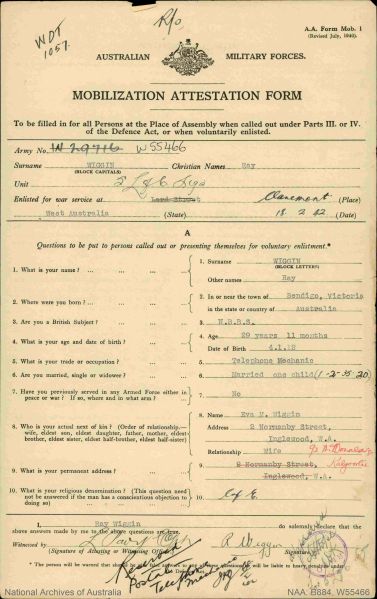 R/o
A.A. Form Mob. 1
(Revised July, 1940).
WDT
1057.
AUSTRALIAN MILITARY FORCES.
MOBILIZATION ATTESTATION FORM
To be filled in for all Persons at the Place of Assembly when called out under Parts III. or IV.
of the Defence Act, or when voluntarily enlisted.
Army No. W 29716 W55466
Surname WIGGIN Christian Names Ray
(BLOCK CAPITALS)
Unit
Enlisted for war service at Lord Street Claremont (Place)
West Australia (State) 18 . 2 . 42 (Date)
A
Questions to be put to persons called out or presenting themselves for voluntary enlistment.*
1. What is your name? ... 1. Surname WIGGIN
(BLOCK LETTERS)
Other names Ray
2. Where were you born? ... 2. In or near the town of Bendigo, Victoria
in the state or country of Australia
3. Are you a British Subject? ... 3. N.B.B.S.
4. What is your age and date of birth? ... 4. Age 29 years 11 months
Date of Birth 4.1.12
5. What is your trade or occupation? ... 5. Telephone Mechanic
6. Are you married, single or widower? ... 6. Married one child (1-2-35-20)
7. Have you previously served in any Armed Force either in
peace or war? If so, where and in what arm? 7. No
8. Who is your actual next of kin? (Order of relationship.—
wife, eldest son, eldest daughter, father, mother, eldest
brother, eldest sister, eldest half-brother, eldest half-sister)
8. Name Eva M. Wiggin
Address 2 Normanby Street,
Inglewood, W.A.
Relationship Wife
9. What is your permanent address? ... 9. 2 Normanby Street,
Inglewood, W.A.
Kalgoorlie
10. What is your religious denomination? (This question need
not be answered if the man has a conscientious objection to
doing so) 10. C of E
I, Ray Wiggin do solemnly declare that the
above answers made by me to the above questions are true.
Witnessed by R. Wiggin
(Signature of Attesting or Witnessing Officer) (Signature)
* The person will be warned that
Postal
Telephone
Mechanic
National Archives of Australia
NAA: B884, W55466